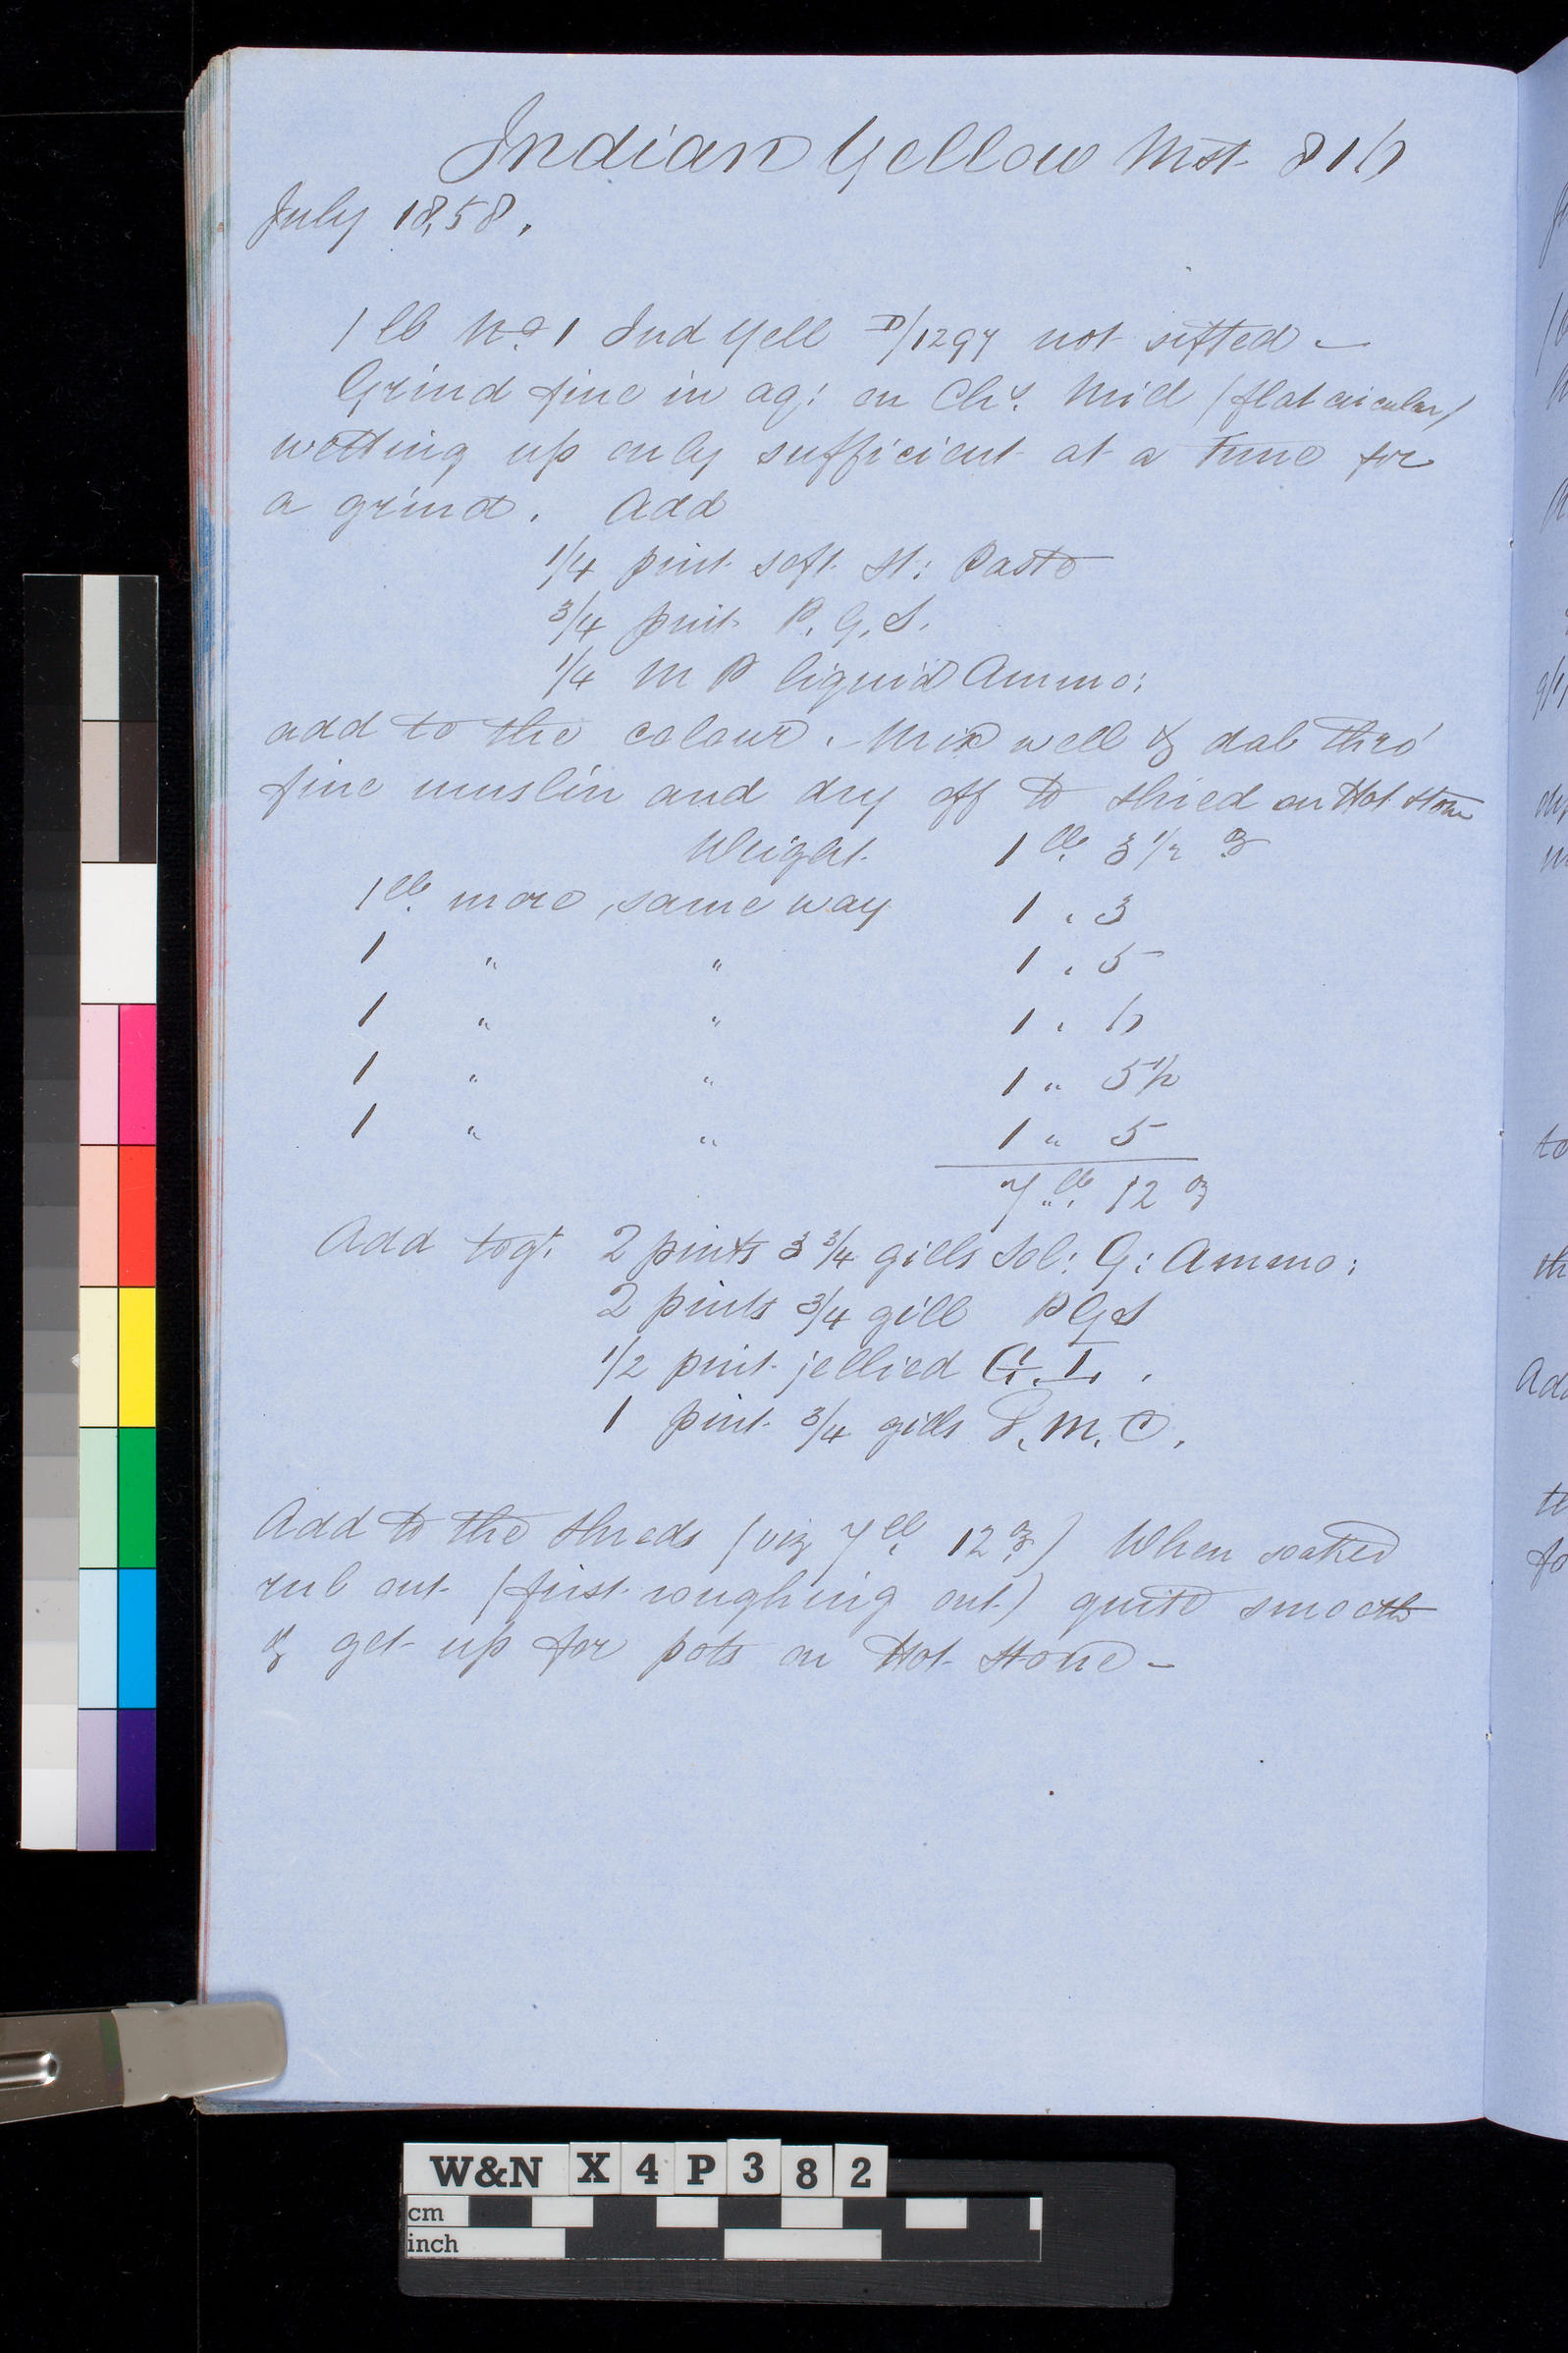 Indian Yellow Mst. 816
July 18,58.
1 lb No. 1 Ind Yell D/1297 not sifted —
Grind fine in aq: on Chs. Mill (flat circular)
wetting up only sufficient at a time for
a grind. Add
1/4 pint soft st: Paste
3/4 pint P. G. S.
1/4 M P liquid Ammo:
add to the colour. – Mix well & dab thro'
fine muslin and dry off to shred on Hot stone
Weight. 1 lb. 3 1/2 oz
1 lb. more, same way 1 . 3
1 " " 1 . 5
1 " " 1 . 6
1 " " 1 " 5 1/2
1 " " 1 " 5
7 " lb. 12 oz
Add togr. 2 pints 3 3/4 gills Sol: G: Ammo:
2 pints 3/4 gill P G S
1/2 pint jellied G. T. .
1 pint 3/4 gills S. M. C.
Add to the shreds (viz 7 lb. 12 oz.) When soaked
rub out (first roughing out) quite smooth
& get up for pots on Hot Stone –
W&N X 4 P 3 8 2
cm
inch